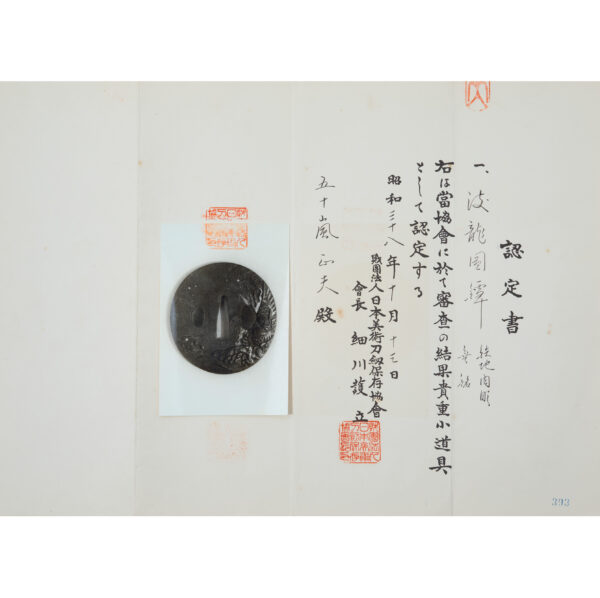 認定書
一、波龍図鐔 鉄地肉彫 無銘
右は當協會に於て審査の結果貴重小道具
として認定する
昭和三十八年十月十三日
財団法人日本美術刀剣保存協會
會長 細川護立
五十嵐正夫殿
393